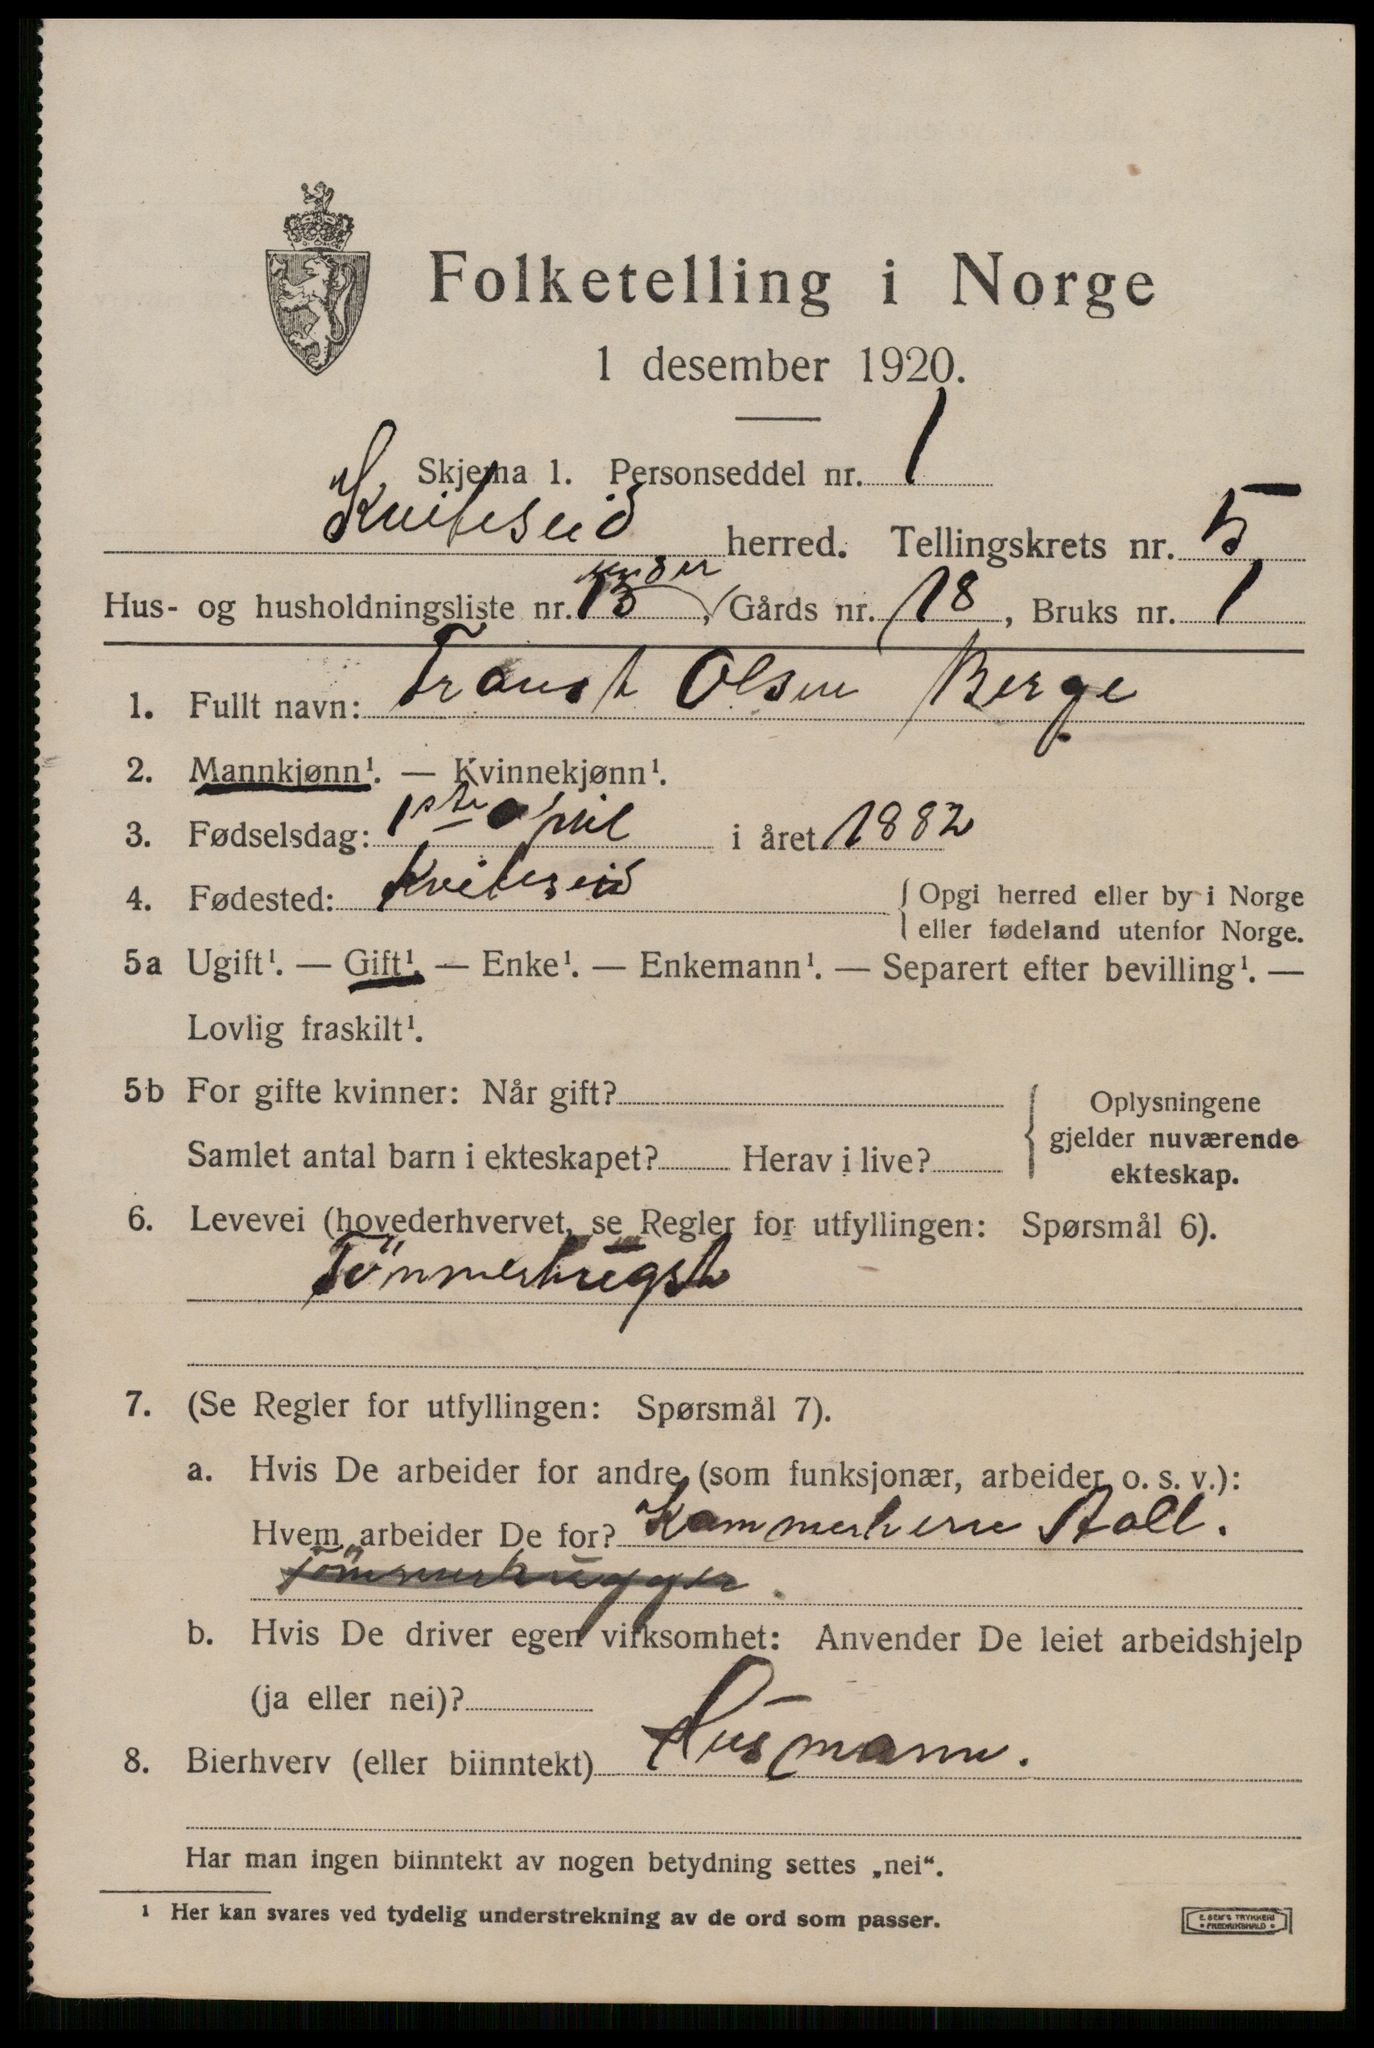 Folketelling i Norge
1 desember 1920.
Skjema 1. Personseddel nr. 1
Kviteseid herred. Tellingskrets nr. 5
under
Hus- og husholdningsliste nr. 13, Gårds nr. 18, Bruks nr. 1
1. Fullt navn: Olsen Berge
2. Mannkjønn¹. — Kvinnekjønn¹.
3. Fødselsdag: 1ste april i året 1882
4. Fødested: Kviteseid { Opgi herred eller by i Norge
eller fødeland utenfor Norge.
5a Ugift¹. — Gift¹. — Enke¹. — Enkemann¹. — Separert efter bevilling¹. —
Lovlig fraskilt¹.
5b For gifte kvinner: Når gift?
Samlet antal barn i ekteskapet? Herav i live?
{ Oplysningene
gjelder nuværende
ekteskap.
6. Levevei (hovederhvervet, se Regler for utfyllingen: Spørsmål 6).
Tömmerhugst
7. (Se Regler for utfyllingen: Spørsmål 7).
a. Hvis De arbeider for andre (som funksjonær, arbeider o. s. v.):
Hvem arbeider De for? Kammerherre Aall.
Tömmerhugger.
b. Hvis De driver egen virksomhet: Anvender De leiet arbeidshjelp
(ja eller nei)?
8. Bierhverv (eller biinntekt) Husmann.
Har man ingen biinntekt av nogen betydning settes „nei“.
¹ Her kan svares ved tydelig understrekning av de ord som passer.
E. SEM'S TRYKKERI
* FREDRIKSHALD *